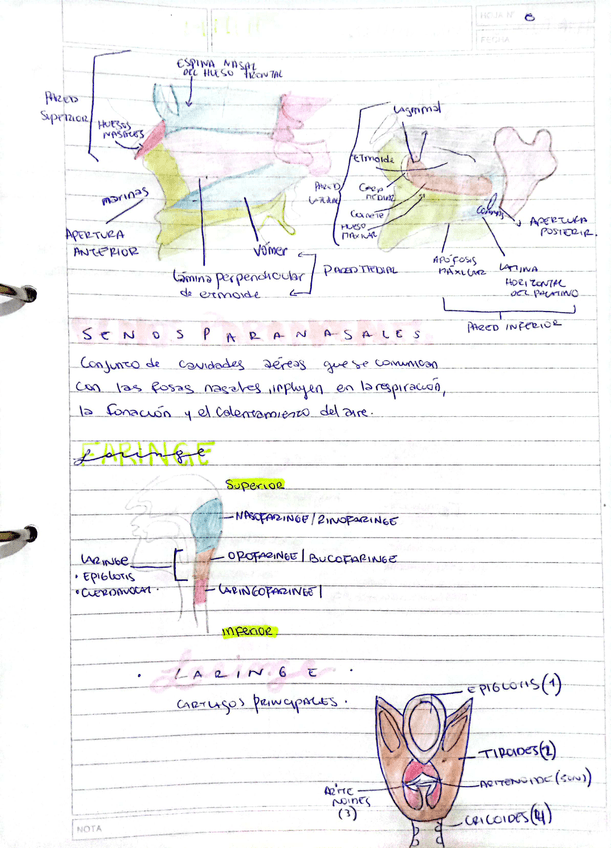 HOJA N° 8
FECHA
ESPINA NASAL
DEL HUESO FRONTAL
PARED
SUPERIOR
HUESOS
NASALES
marinas
APERTURA
ANTERIOR
Vómer
Lámina perpendicular
de etmoide
PARED MEDIAL
Lagrimal
ETmoide
PARED
CORNETE
HUESO
MAXILAR
APERTURA
POSTERIR.
APÓFOSIS
MAXILAR
LAMINA
HORIZONTAL
DEL PALATINO
PARED INFERIOR
SENOS PARANASALES
Conjunto de cavidades aéreas que se comunican
con las fosas nasales, influyen en la respiración,
la fonación y el calentamiento del aire.
FARINGE
Superior
NASOFARINGE / RINOFARINGE
OROFARINGE / BUCOFARINGE
LARINGOFARINGE /
LARINGE
• EPIGLOTIS
Inferior
• LARINGE •
CARTILAGOS PRINCIPALES.
EPIGLOTIS (1)
TIROIDES (2)
ARITENOIDE
ARITE
NOIDES
(3)
CRICOIDES (4)
NOTA